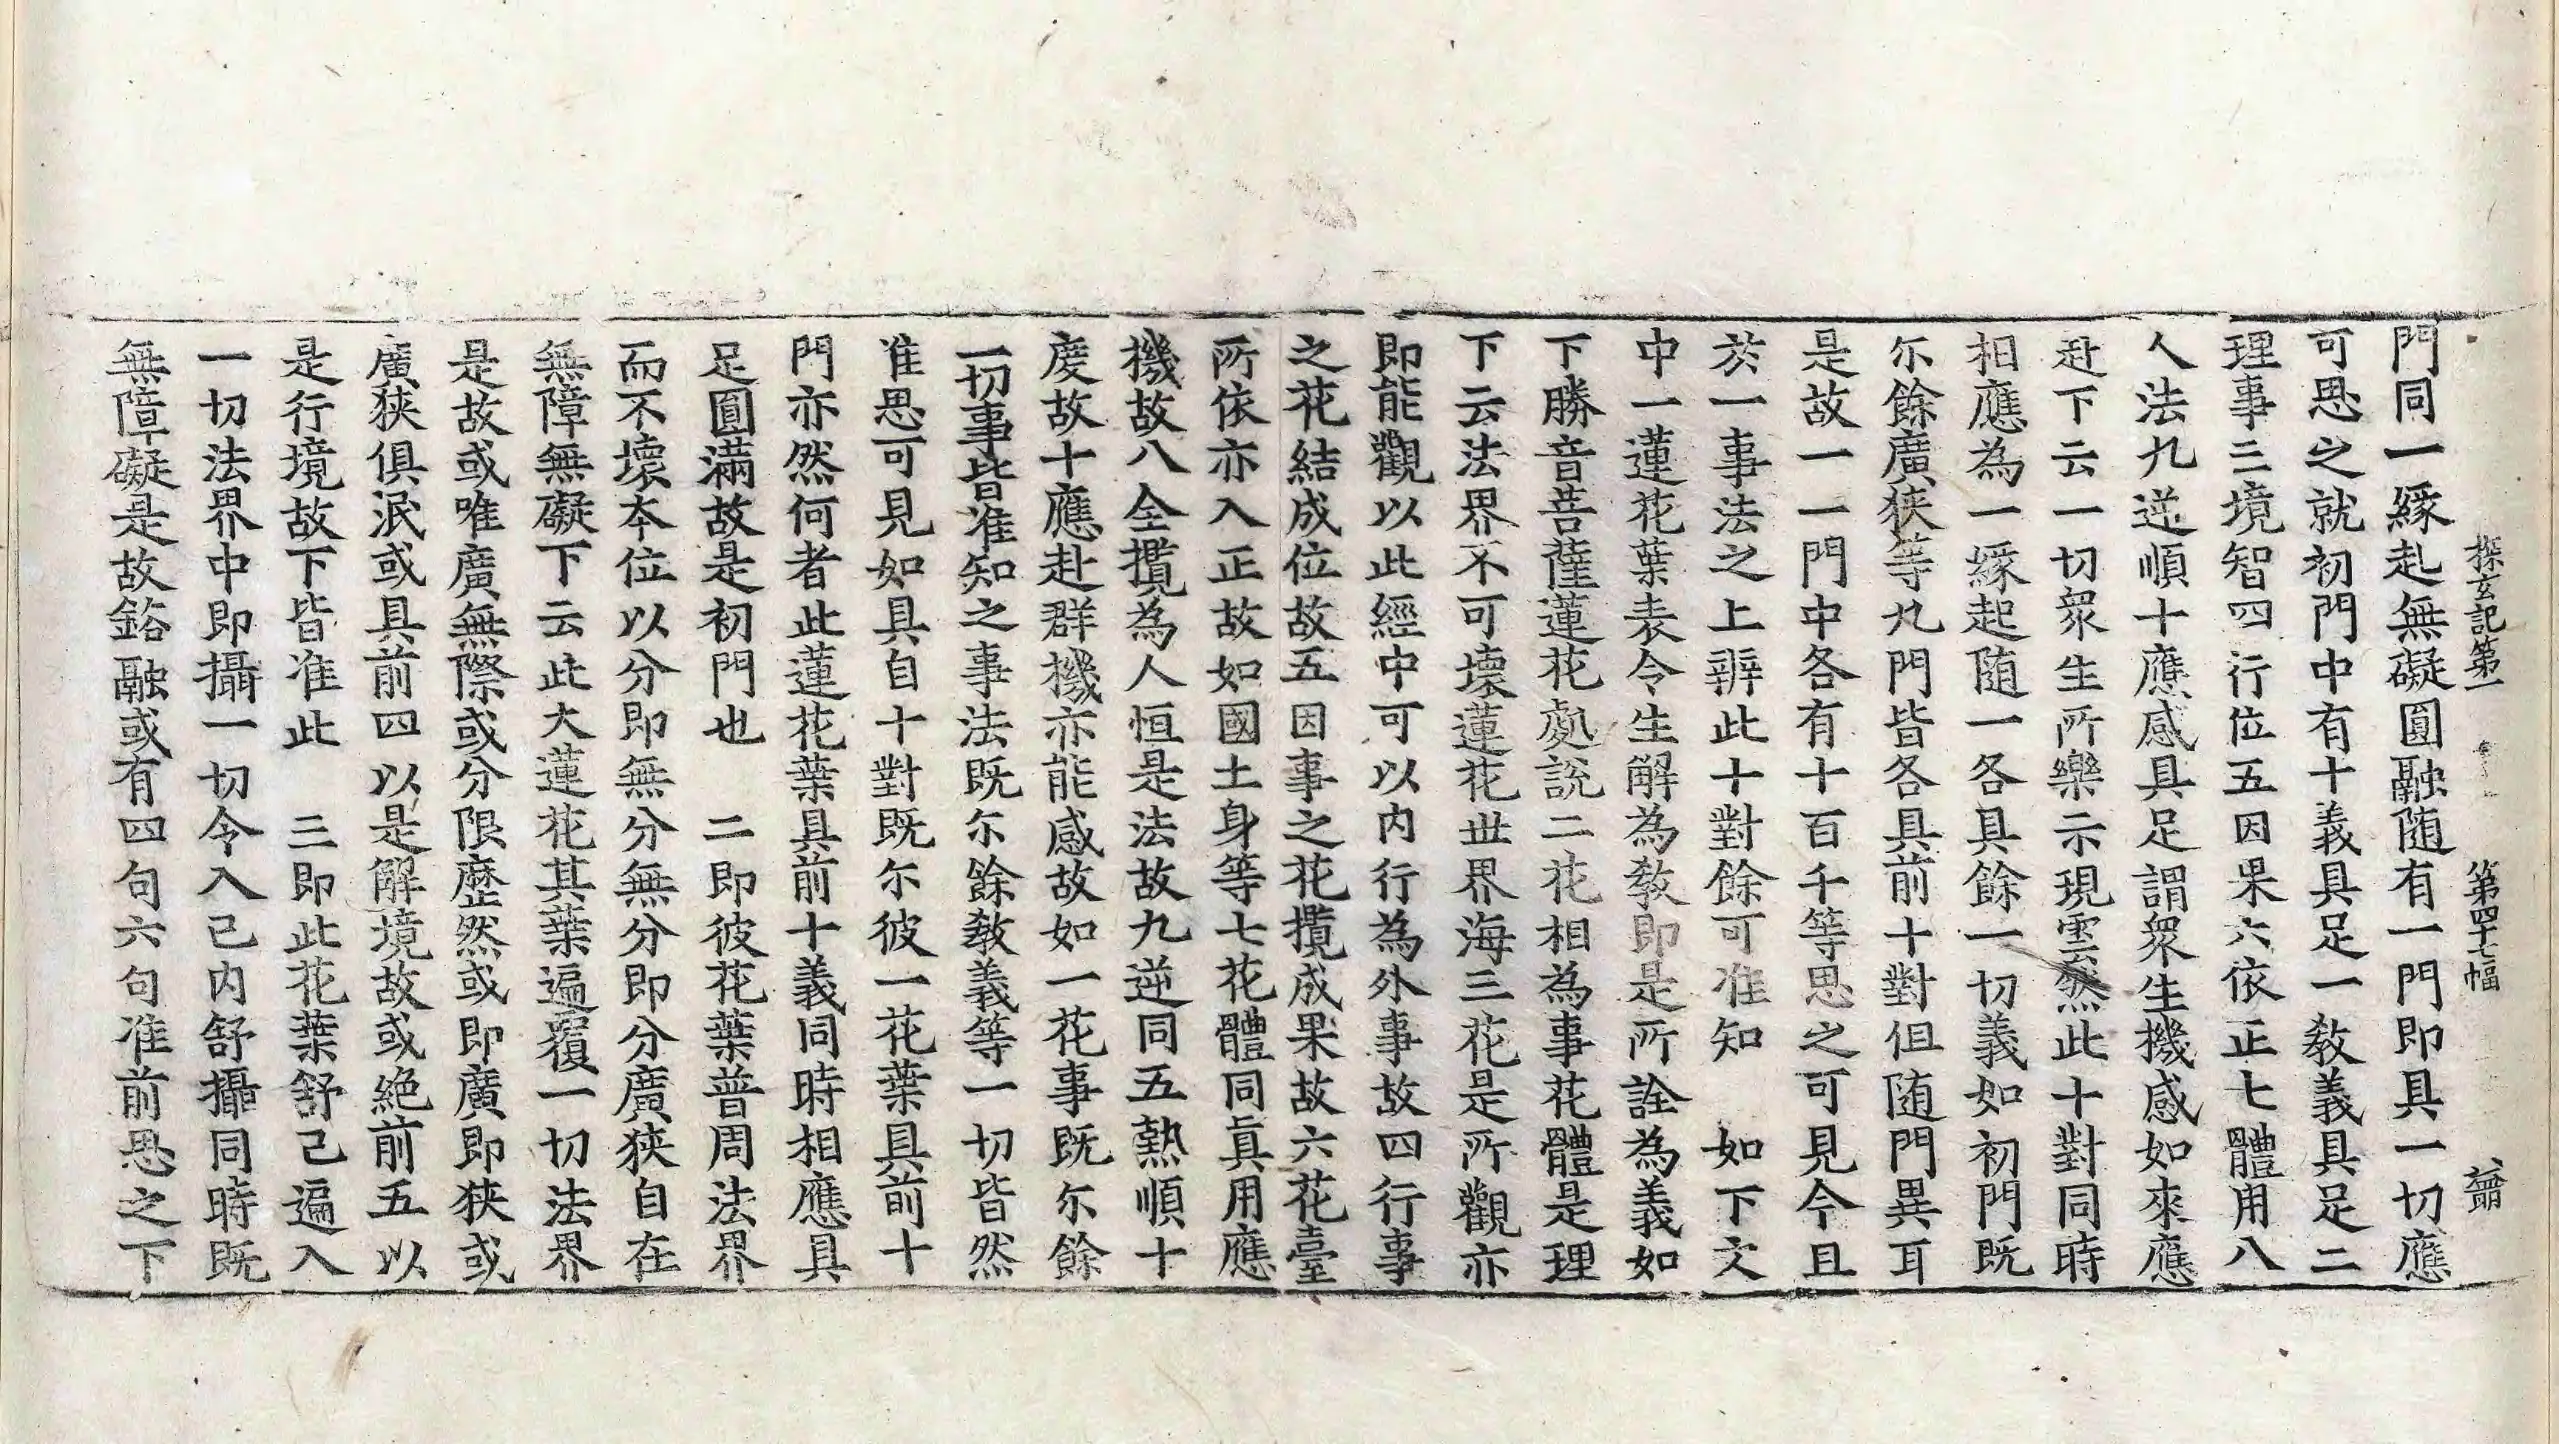 探玄記第一 第四十七幅
門同一緣起無礙圓融随有一門即具一切應
可思之就初門中有十義具足一教義具足二
理事三境智四行位五因果六依正七體用八
人法九逆順十應感具足謂衆生機感如來應
赴下云一切衆生所樂示現雲然此十對同時
相應為一緣起随一各具餘一切義如初門既
尓餘廣狹等九門皆各具前十對但随門異耳
是故一一門中各有十百千等思之可見今且
於一事法之上辨此十對餘可准知 如下文
中一蓮花葉表令生解為教即是所詮為義如
下勝音菩薩蓮花處說二花相為事花體是理
下云法界不可壞蓮花世界海三花是所觀亦
即能觀以此經中可以内行為外事故四行事
之花結成位故五因事之花攬成果故六花臺
所依亦入正故如國土身等七花體同真用應
機故八全攬為人恒是法故九逆同五熱順十
度故十應赴群機亦能感故如一花事既尓餘
一切事皆准知之事法既尓餘教義等一切皆然
准思可見如具自十對既尓彼一花葉具前十
門亦然何者此蓮花葉具前十義同時相應具
足圓滿故是初門也 二即彼花葉普周法界
而不壞本位以分即無分無分即分廣狹自在
無障無礙下云此大蓮花其葉遍覆一切法界
是故或唯廣無際或分限歷然或即廣即狹或
廣狹俱泯或具前四以是解境故或絕前五以
是行境故下皆准此 三即此花葉舒己遍入
一切法界中即攝一切令入己内舒攝同時既
無障礙是故鎔融或有四句六句准前思之下